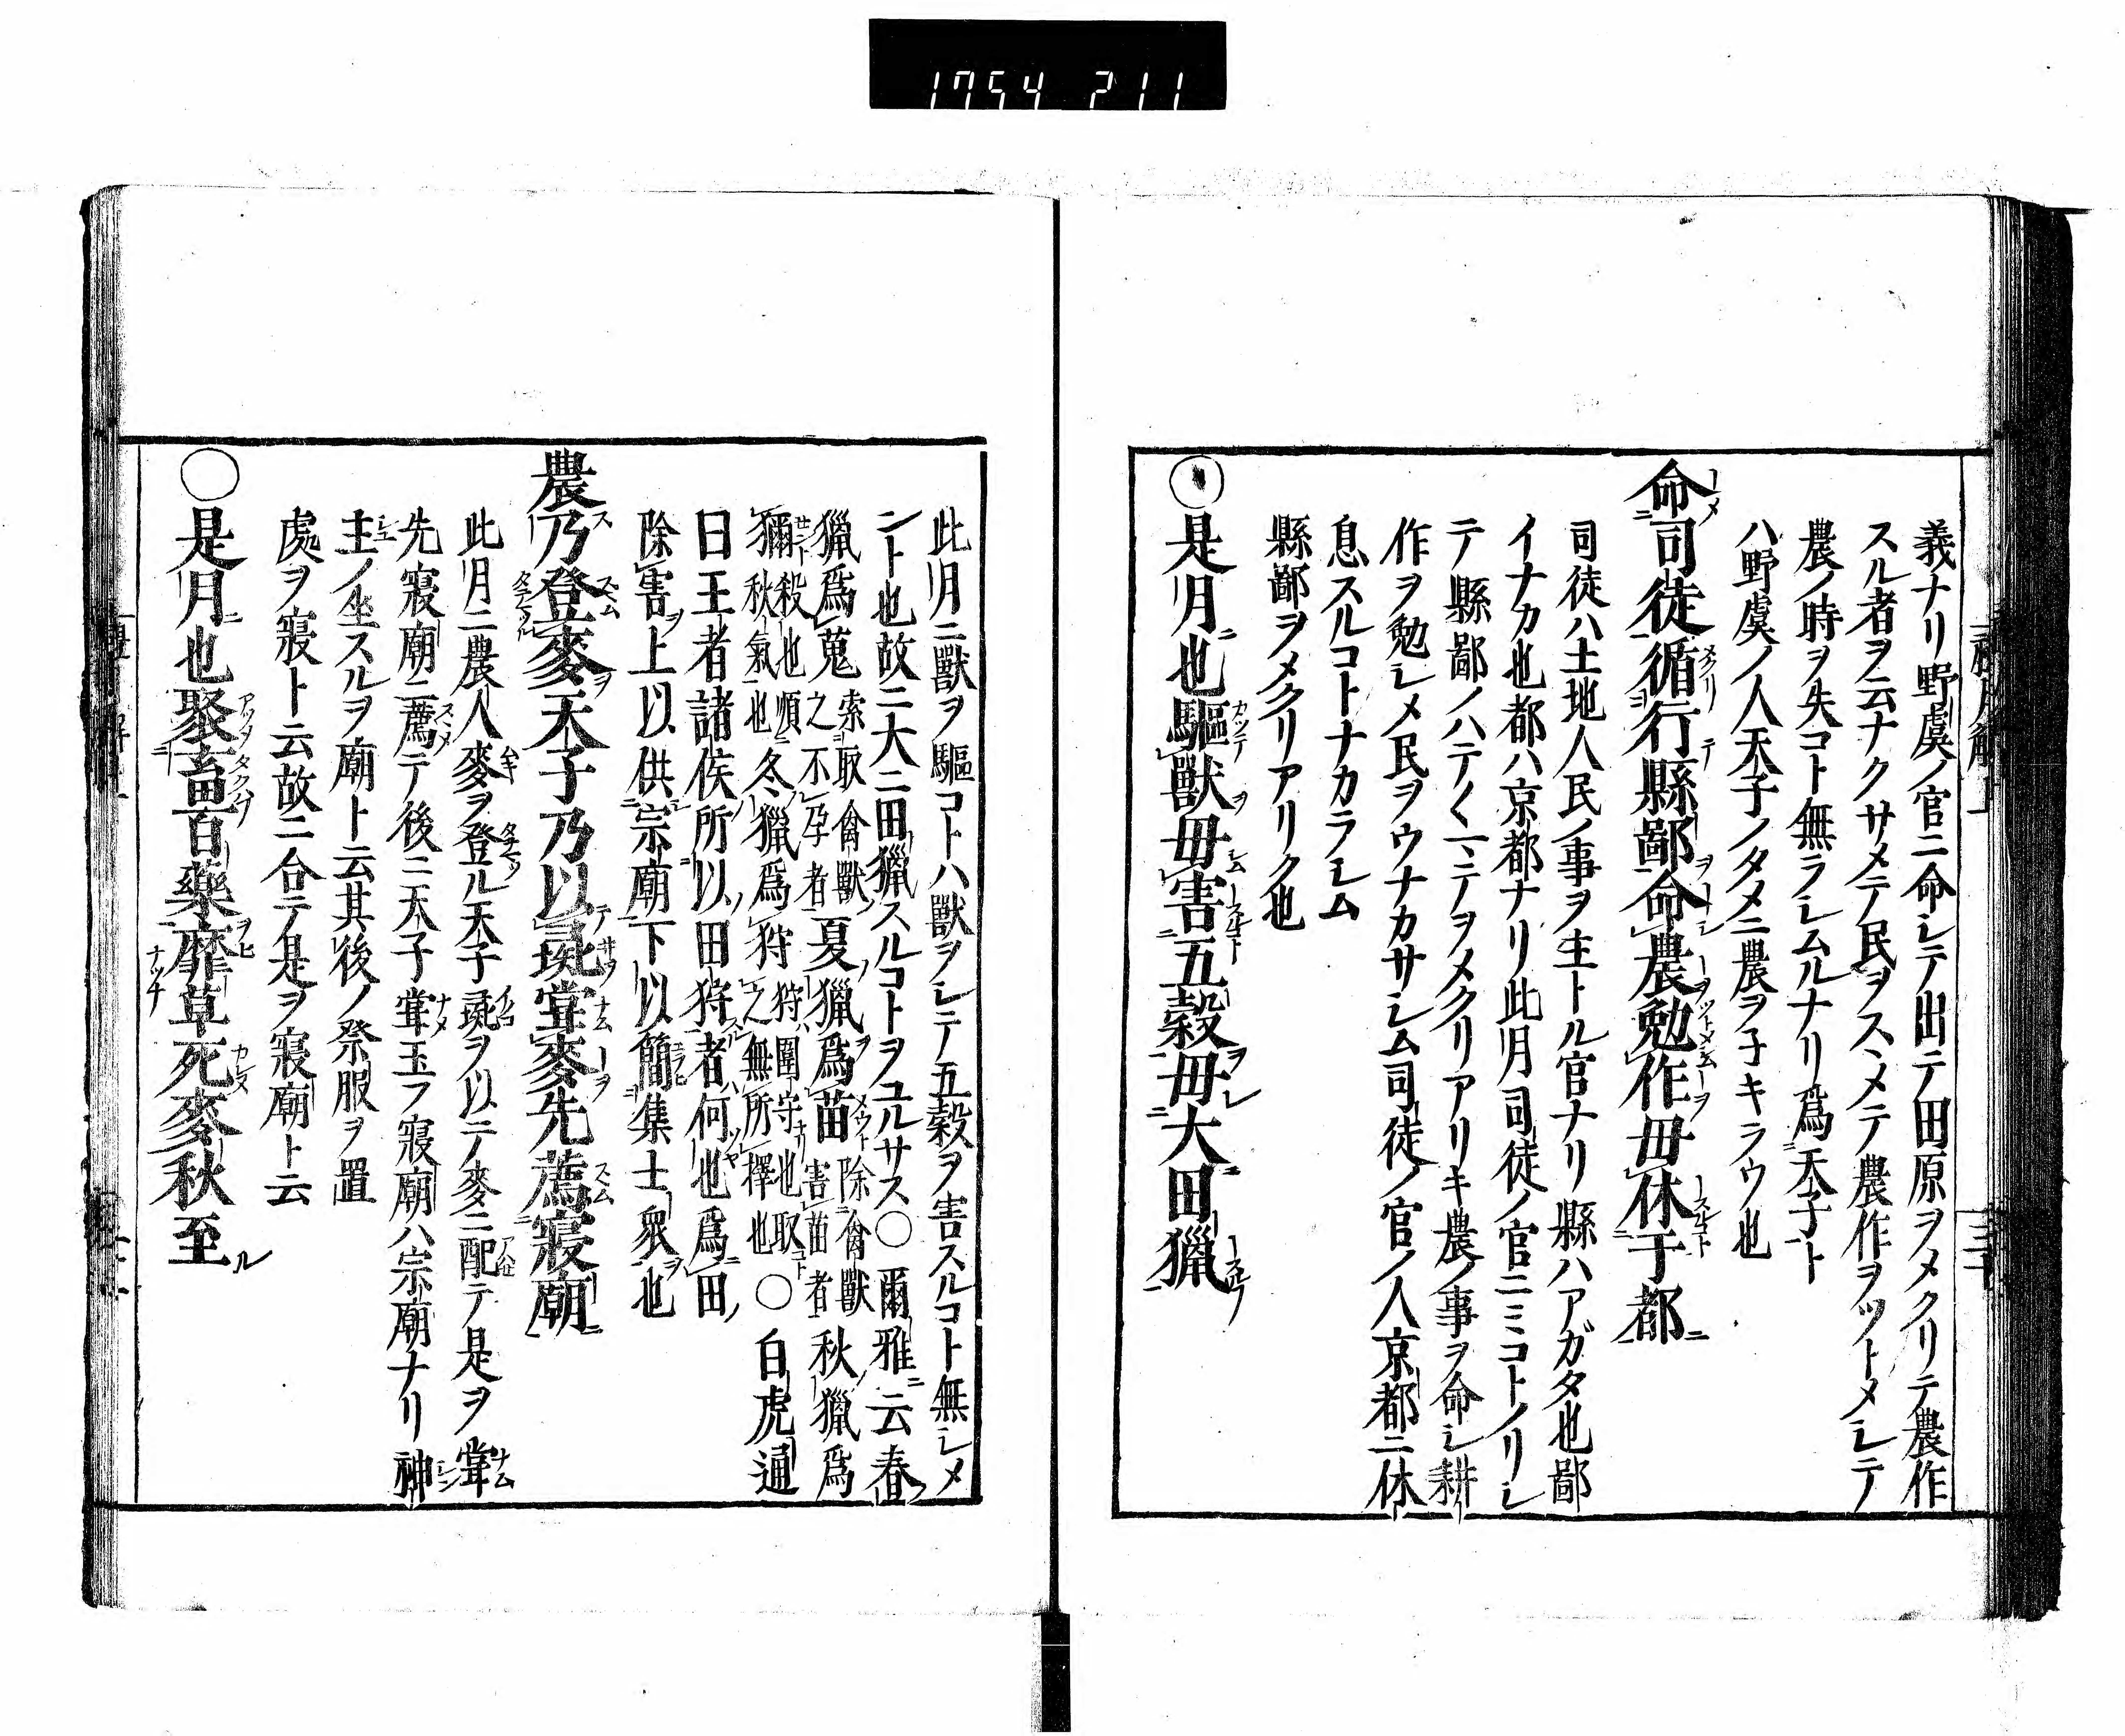 1754 211
義ナリ野虞ノ官ニ命シテ出テ田原ヲメクリテ農作
スル者ヲ云ナクサメテ民ヲスヽメテ農作ヲツトメシテ
農ノ時ヲ失コト無ラシムルナリ爲天子ト
ハ野虞ノ人天子ノタメニ農ヲ子キラウ也
命司徒循行縣鄙命農勉作毋休于都
司徒ハ土地人民ノ事ヲ主トル官ナリ縣ハアガタ也鄙
イナカ也都ハ京都ナリ此月司徒ノ官ニミコトノリシ
テ縣鄙ノハテ〱ニテヲメクリアリキ農ノ事ヲ命シ耕
作ヲ勉シメ民ヲウナカサシム司徒ノ官ノ人京都ニ休
息スルコトナカラシム
縣鄙ヲメクリアリク也
○是月也驅獸毋害五穀毋大田獵
此月ニ獸ヲ驅コトハ獸ヲシテ五穀ヲ害スルコト無シメ
ントナリ故ニ大ニ田獵スルコトヲユルサス○爾雅云春
獵爲蒐索取禽獸之不孕者夏獵爲苗除禽獸害苗者秋獵爲
獮殺也順秋氣也冬獵爲狩狩圍守也取之無所擇也○白虎通
曰王者諸侯所以田狩者何也爲田
除害上以供宗廟下以簡集士衆也
農乃登麥天子乃以彘甞麥先薦寢廟
此月ニ農人麥ヲ登ル天子彘ヲ以テ麥ニ配テ是ヲ甞
先寢廟ニ薦テ後ニ天子甞玉フ寢廟ハ宗廟ナリ神
主ノ坐スルヲ廟ト云其後ノ祭服ヲ置
處ヲ寢ト云故ニ合テ是ヲ寢廟ト云
○是月也聚畜百藥靡草死麥秋至